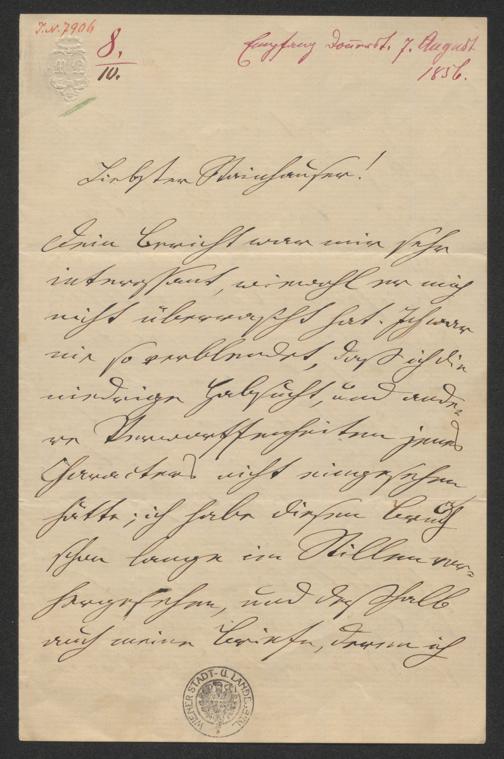 I.N. 7906
8.
10.
Empfang Donnerst. 7. August
1856.
Liebster Stainhauser!
Dein Bericht war mir sehr
interessant, wiewohl er mich
nicht überrascht hat. Ich war
nie so verblendet, daß ich die
niedrige Habsucht, und ande-
re Verworffenheiten jenes
Characters nicht eingesehen
hätte; ich habe diesen Bruch
schon lange im Stillen vor-
hergesehen, und deßhalb
auch meine Briefe, deren ich
WIENER STADT- U. LANDES-BIBL.